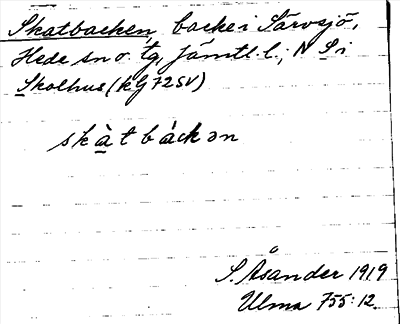 Skatbacken, backe i Särvsjö,
Hede sn o. tg, Jämtl. l.; N S i
Skolhus (kG 72 SV)
skàt bàckən
S. Åsander 1919
Ulma 755:12.